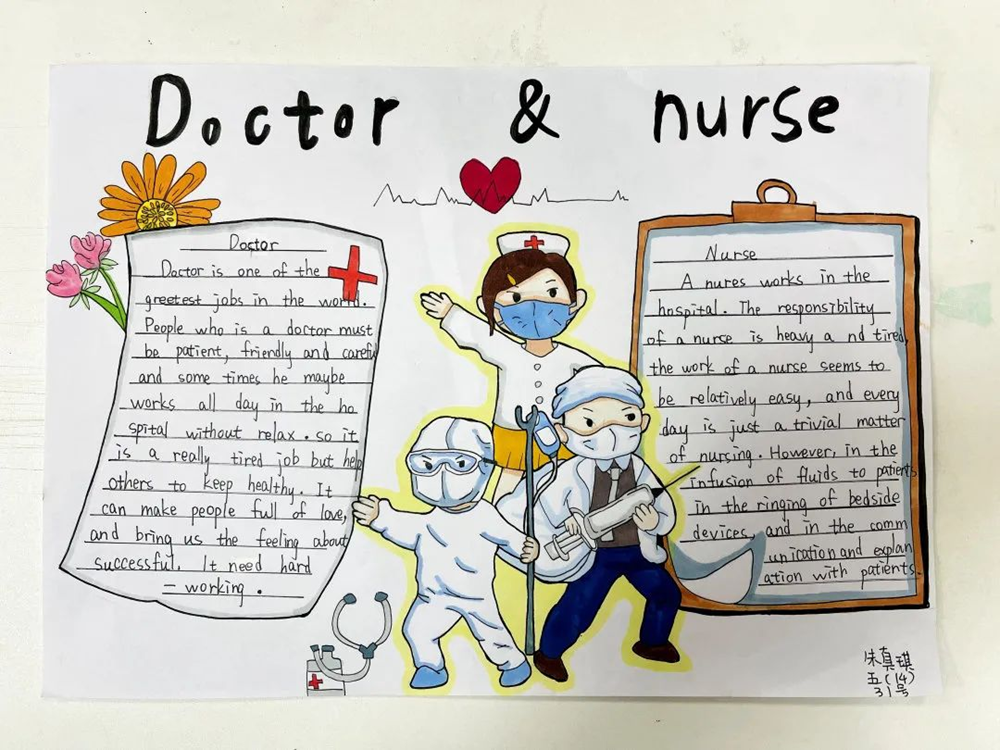 Doctor & nurse
Doctor
Doctor is one of the
greetest jobs in the world.
People who is a doctor must
be patient, friendly and careful
and some times he maybe
works all day in the ho
spital without relax. so it
is a really tired job but help
others to keep healthy. It
can make people full of love,
and bring us the feeling about
successful. It need hard
- working.
Nurse
A nures works in the
hospital. The responsibility
of a nurse is heavy a nd tired,
the work of a nurse seems to
be relatively easy, and every
day is just a trivial matter
of nursing. However, in the
infusion of fluids to patients
in the ringing of bedside
devices, and in the comm
unication and explan
ation with patients.
朱真琪
五(14)
31号